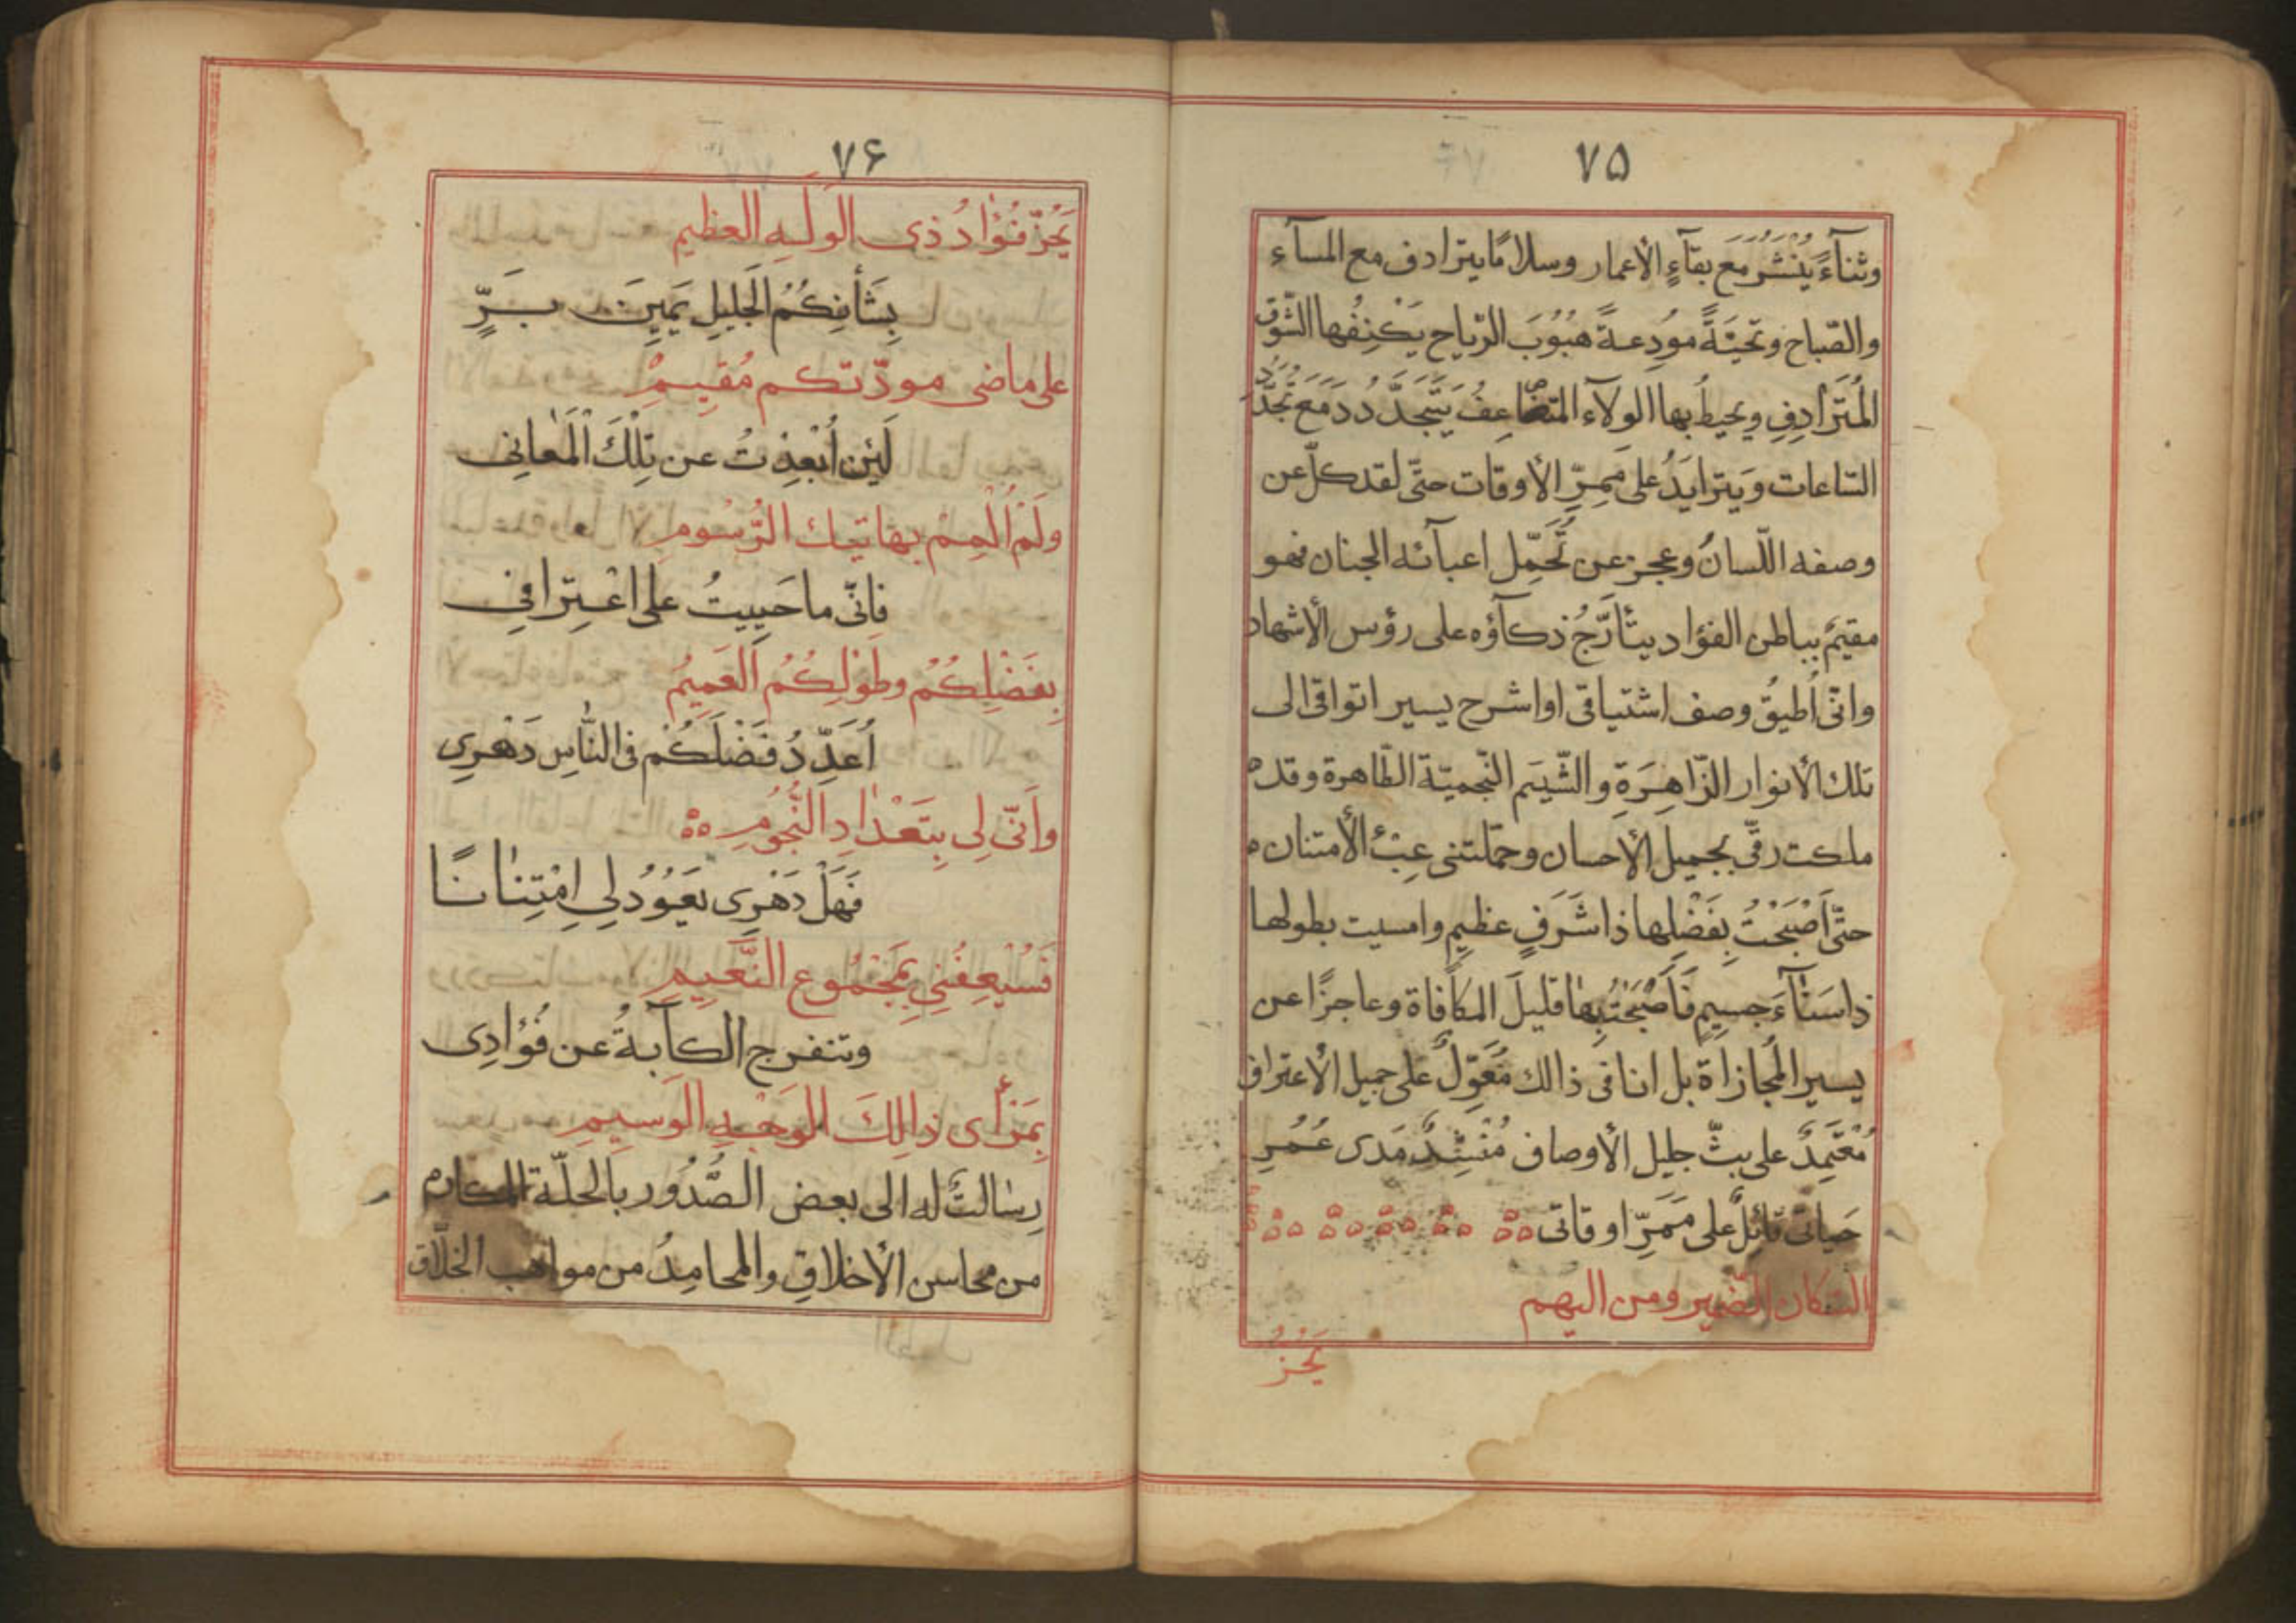 ٧۵
وثنآءً يُنْشَر مَعَ بقآءِ الأعمار وسلامًا يترادف مع المسآءِ
والصّباح وتحيّةً مودعةً هبُوُبَ الرّياح يَكْنِفُها الشّوق
المُتَرادِفِ ويحيطُ بها الولآء المتضاعِفُ يَتَجَدَّدُ مَعَ تَجَدُّدُ
السّاعات وَيترايَدُ على مَمِرِّ الأوقات حتّى لقد كلّ عن
وصفه اللّسانُ وعجز عن تَحَمِّل اعبآئه الجنان فهو
مقيمٌ بباطن الفؤاد يتأرَّجُ ذكآؤه على رؤس الأشهاد
وانّى اُطيقُ وصف اشتياقى او اشرح يسير اتواقى الى
تلك الأنوار الزّاهِرَةِ والشّيَم النّجميّة الطّاهرة وقد
ملكت رقّى بجميل الأحسان وحمّلتنى عِبْ‌ٔ الأمتنان
حتّى اَصْبَحْتُ بِفَضْلِها ذا شَرَفٍ عظيمٍ وامسيت بطولها
ذا سَنٰآءَ جسيمٍ فَاَصْبَحْتُ بِهٰا قليلَ المكافاة وعاجزًا عن
يسير المُجازاة بل انا فى ذالك مُعَوِّلٌ على جميل الأعتراف
مُعْتَمِدٌ على بثّ جليل الأوصاف مُنْشِدٌ مَدى عُمُرِ
حَياتى قائِلٌ على مَمَرِّ اوقاتى
السكان الضّمير ومن اليهم
يَحُزُّ
٧۶
يَحُزُّ فُؤٰادُ ذى الوَلَهِ العظيم
بِشَأنِكُمُ الجَليلِ يَمينَ بَرٍّ
على ماضى مودّتكم مُقيمْ
لَئِن اُبْعِدْتُ عن تِلْكَ الْمَعٰانى
ولَمْ اُلْمِمْ بهاتيك الرُّسُومِ
فانّى ما حَيِيتُ على اعْتِرافى
بِفَضْلِكُمُ وطَوْلِكُمُ العَميمُ
اُعَدِّدُ فَضْلَكُمْ فى النّٰاسِ دَهْرى
واَنّى لى بِتَعْدٰادِ النُّجُومِ
فَهَلْ دَهْرِى يَعُوُدُ لى امْتِنٰانًا
فَسُيْعِفُنى بِمَجْمُوعِ النَّعيمِ
وتنفرج الكآبةُ عن فُؤادِى
بِمَرْأى ذالِكَ الوَجْهِ الوَسيمِ
رِسٰالتٌ له الى بعض الصُّدُور بالحلّة المكارم
من محاسن الأخلاقِ والمحامِدُ من مواهب الخلّاق